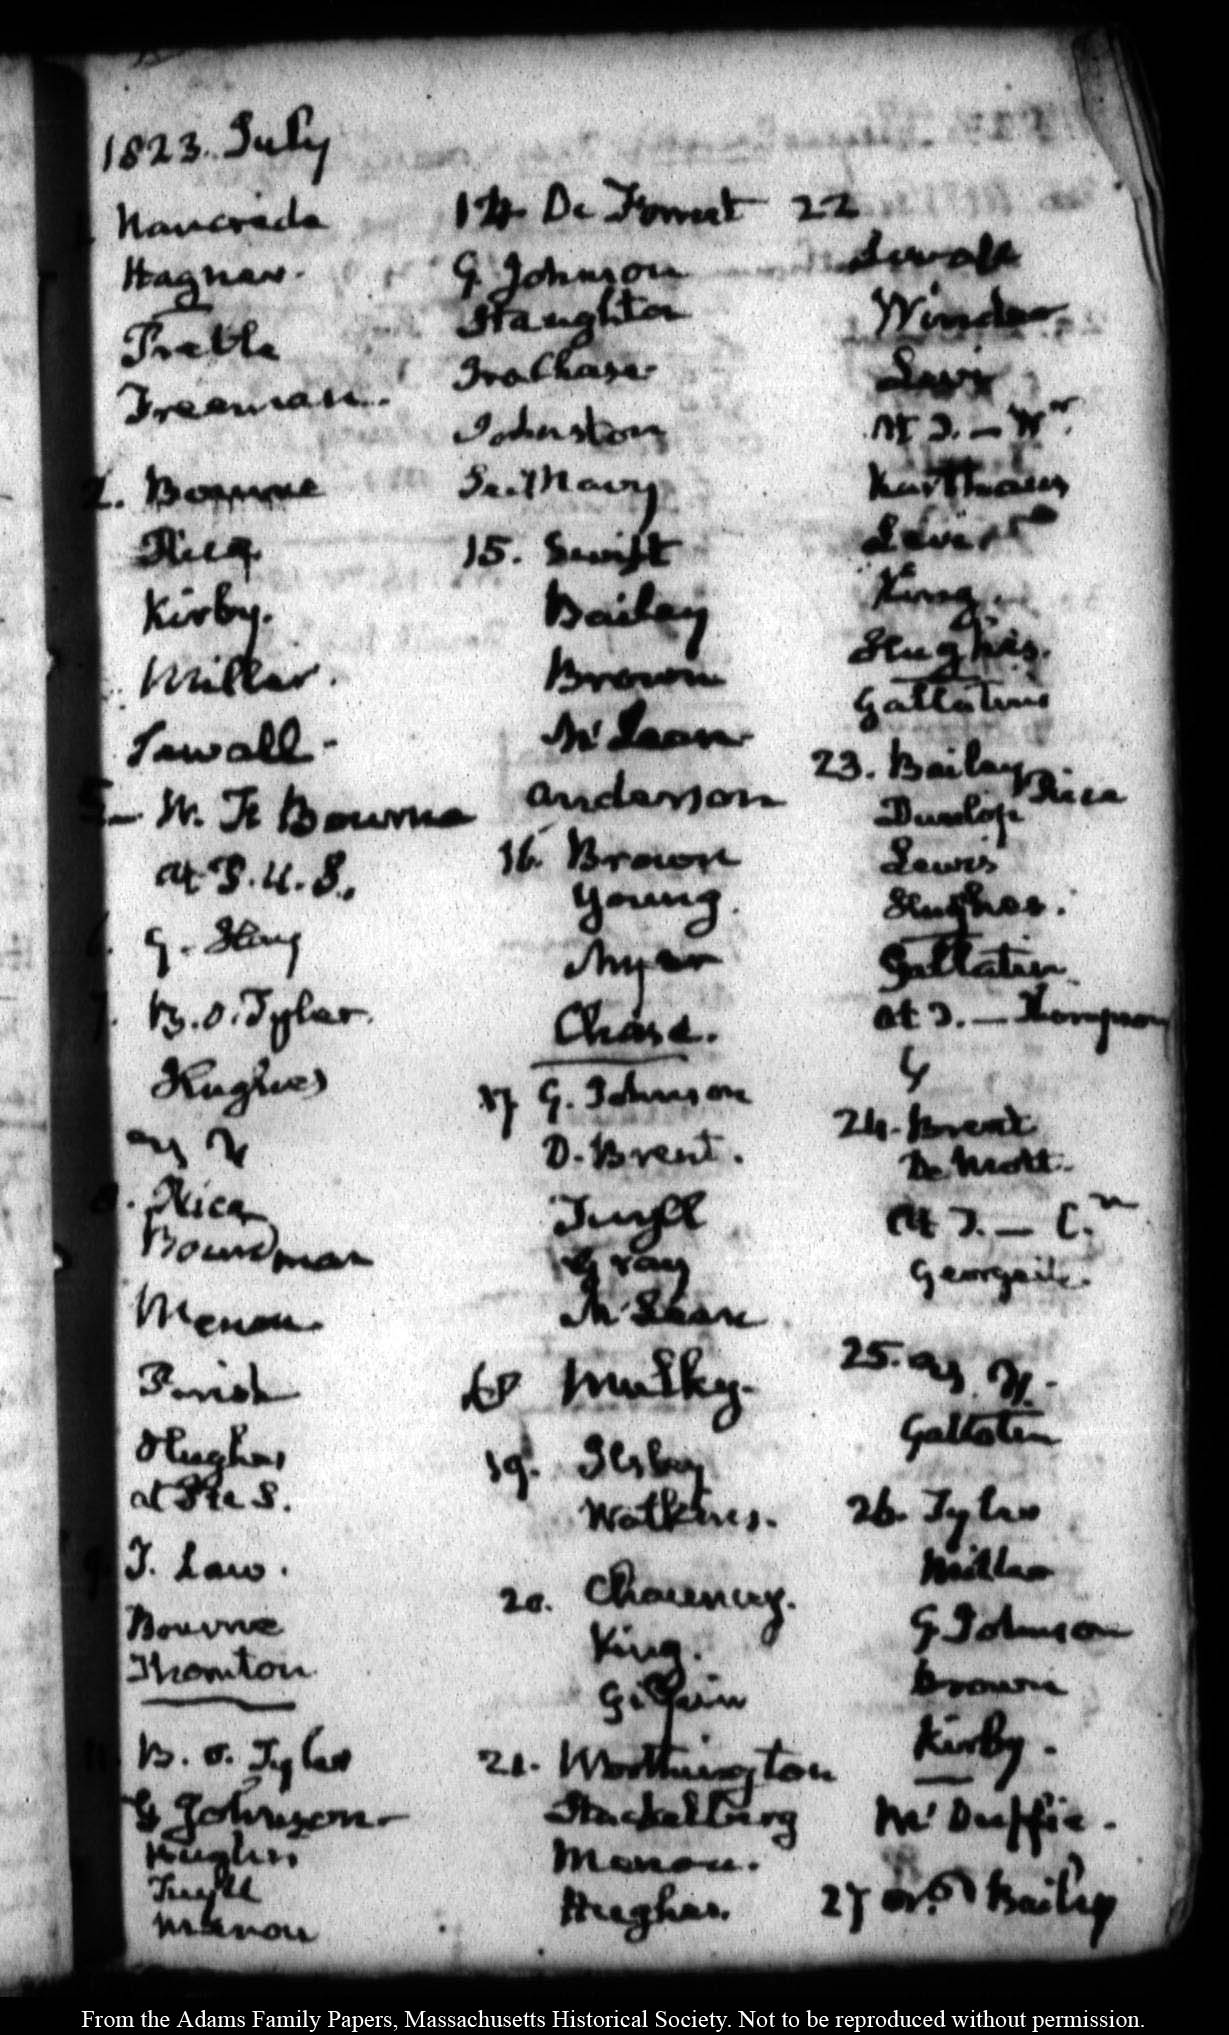 1823. July
1. Nancrede
Hagner.
Preble
Freeman.
2. Bourne
Rice
Kirby.
Miller.
Sewall.
5. W. Fr Bourne
at P.U.S.
6. G. Hay
7. B.O. Tyler.
Hughes
8. Rice
Boardman
Menou.
Parish
Hughes
at
9. T. Law.
Bourne
Thornton
11. B. O. Tyler
G Johnson.
Hughes
Tuyll
Menou
14. De Forrest
G Johnson
Staughton
Ira Chase.
Johnston
Navy
15. Swift
Bailey
Brown
McLean
Anderson
16. Brown
Young.
Myer
Chase.
17 G. Johnson
D. Brent.
Tuyll
Gray
McLean
18 Mulky.
19. Ilsley
Watkins.
20. Chauncey.
King.
Gilpin
21. Worthington
Stackelberg
Menou.
Hughes.
22
Sewall
Winder
Lewis
At T. — Wr.
Karthaus
King.
Hughes.
Gallatins
23. Bailey. Rice
Dunlop
Lewis
Hughes.
Gallatin
at T. — Thompson
G
24. Brent
De Mott.
At T. — C.n
George
25.
Gallatin
26. Tyler
Miller
G Johnson
Brown
Kirby.
McDuffie.
27 Bailey
From the Adams Family Papers, Massachusetts Historical Society. Not to be reproduced without permission.